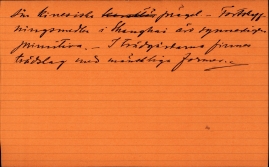 den kinesiska prägel. – Fortskaff-
ningsmedlen i Shanghai äro synnerligen
primitiva. – I trädgårdarna finnes
trädslag med märkliga former.